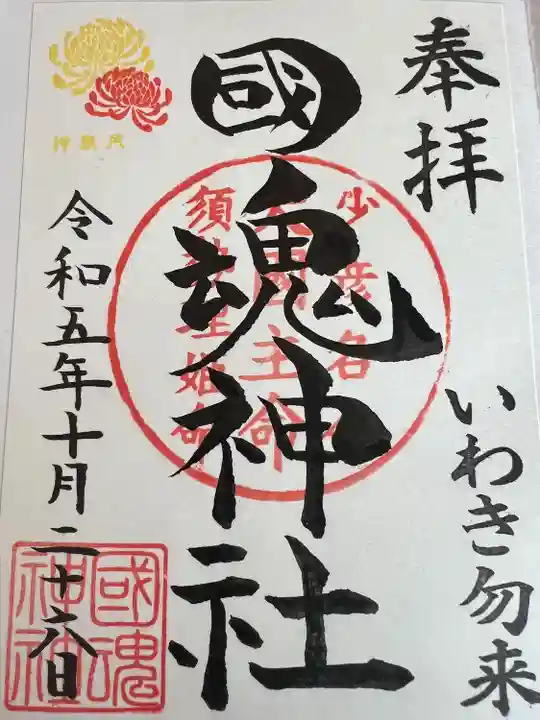 奉拝
いわき勿来
國魂神社
少彦名命
大國主命
須勢理姫命
令和五年十月二十六日
神無月
國魂
神社